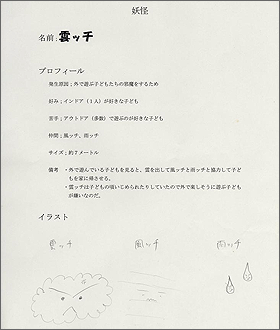 妖怪
名前：雲ッチ
プロフィール
発生原因：外で遊ぶ子どもたちの邪魔をするため
好み：インドア（１人）が好きな子ども
苦手：アウトドア（多数）で遊ぶのが好きな子ども
仲間：風ッチ、雨ッチ
サイズ：約７メートル
備考　・外で遊んでいる子どもを見ると、雲を出して風ッチと雨ッチと協力して子ども
を家に帰させる。
・雲ッチは子どもの頃いじめられたりしていたので外で楽しそうに遊ぶ子ども
が嫌いなのだ。
イラスト
雲ッチ
風ッチ
雨ッチ